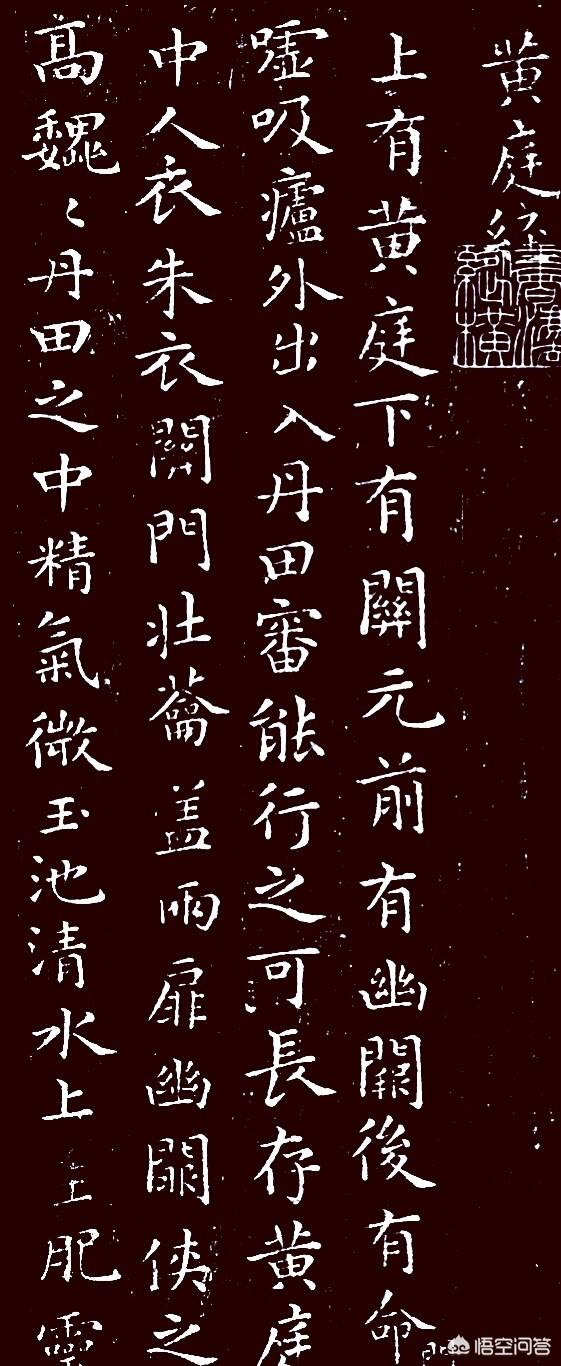 黄庭經
書法縱橫
上有黄庭下有關元前有幽闕後有命
噓吸廬外出入丹田審能行之可長存黄庭
中人衣朱衣關門壯蘥盖兩扉幽闕俠之
高巍〻丹田之中精氣微玉池清水上生肥靈
悟空问答